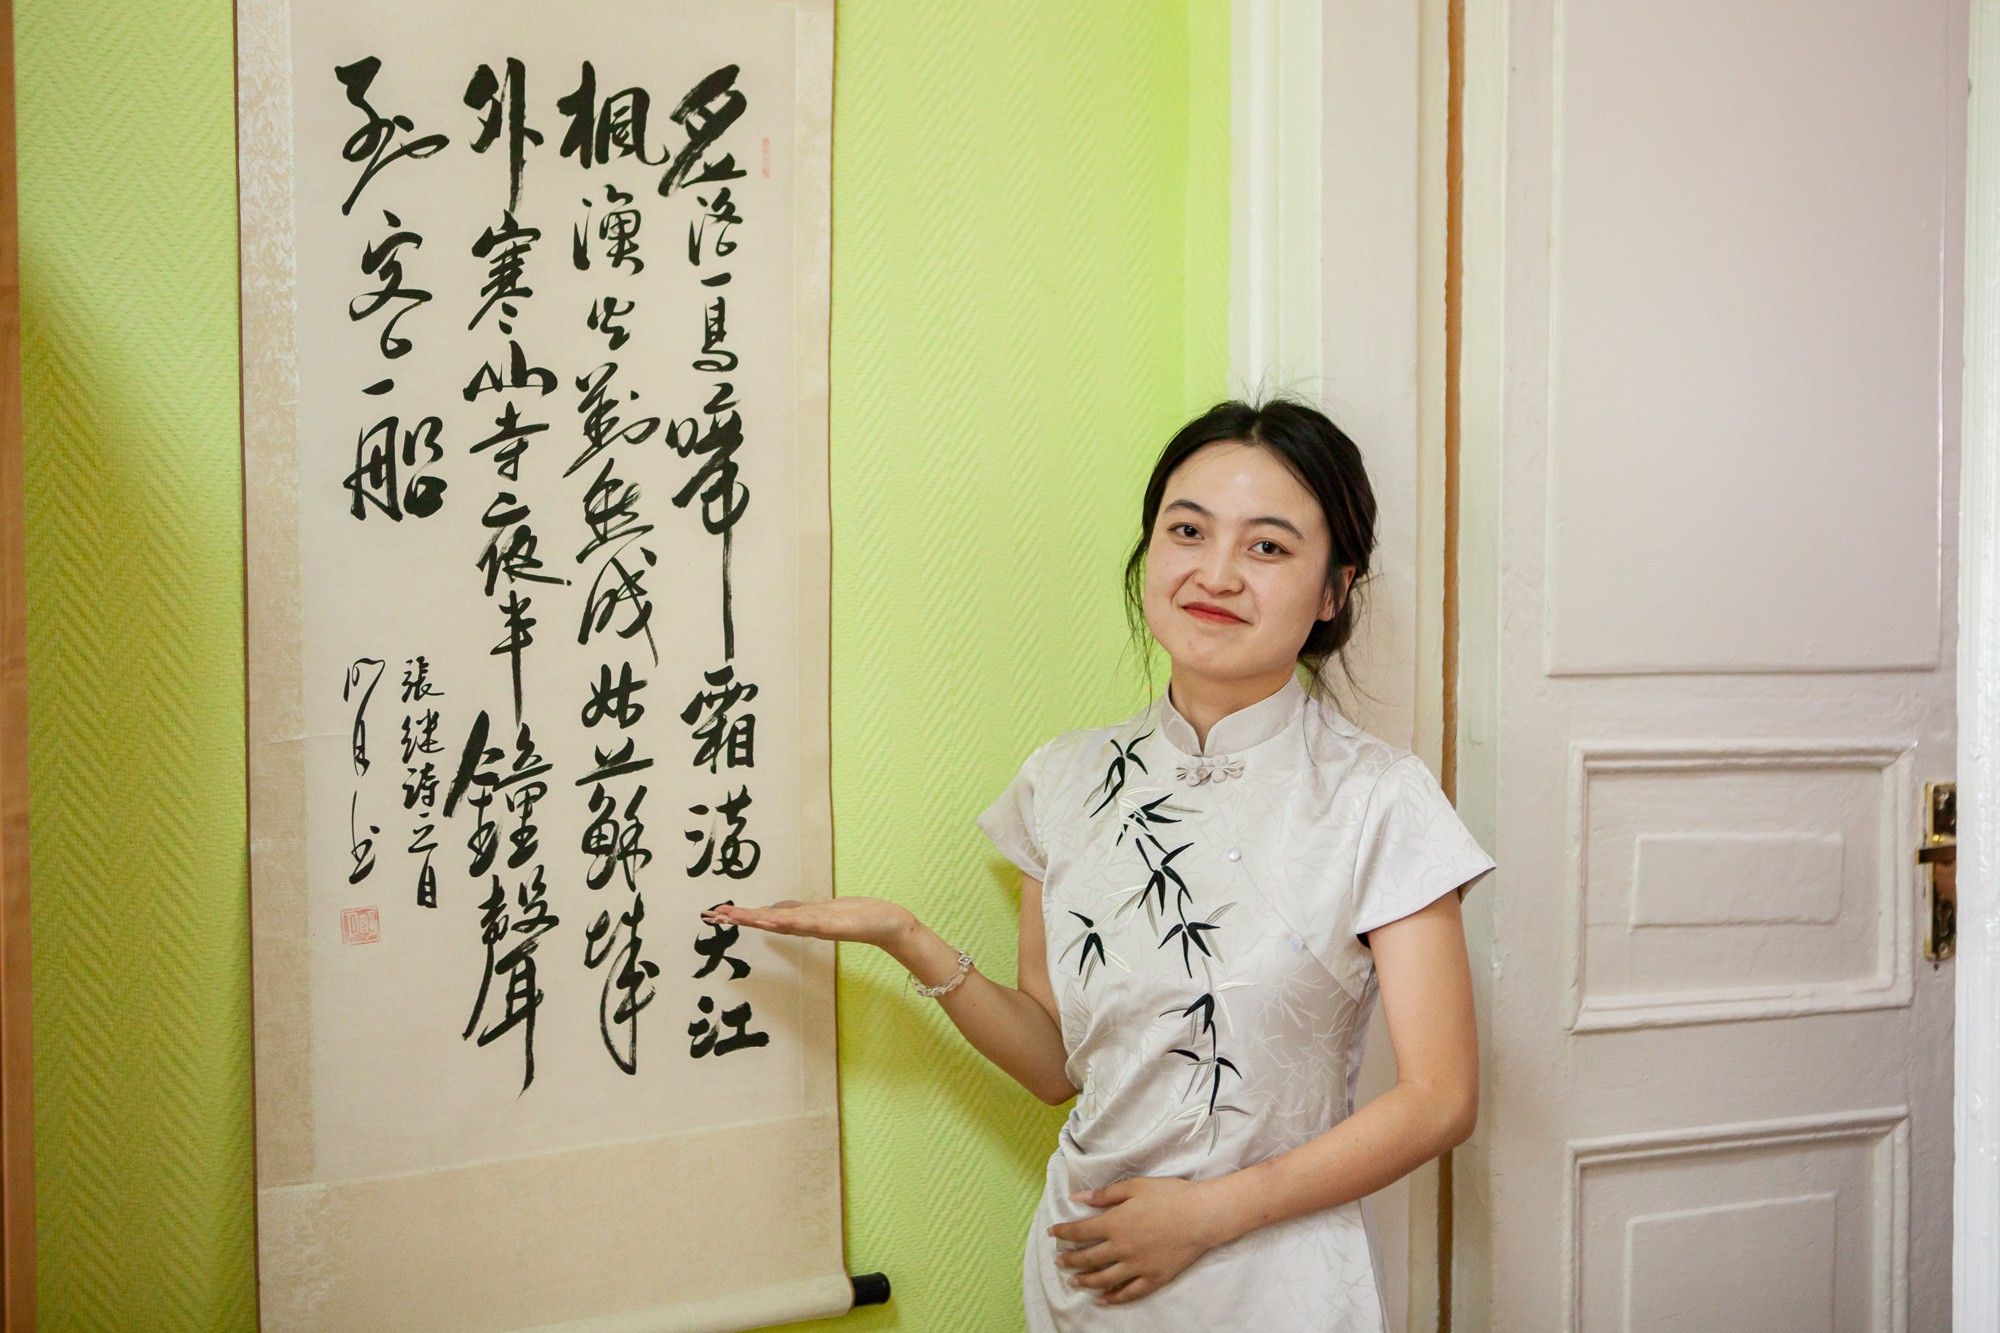 月落烏啼霜滿天江
楓漁火對愁眠姑蘇城
外寒山寺夜半鐘聲
到客船
張継詩